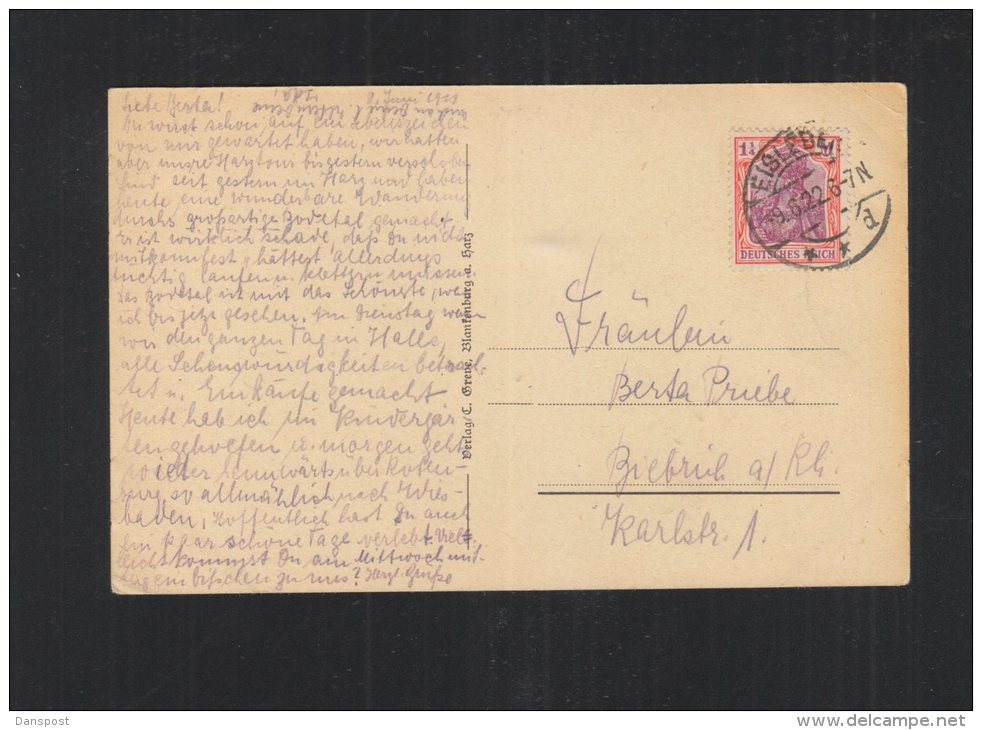 Liebe Berta! 8. Juni 1922
Du wirst schon auf ein Lebenszeichen
von mir gewartet haben, wir hatten
aber unsre Harztour bis gestern verschoben
Sind seit gestern im Harz und haben
heute eine wunderbare Wanderung
durchs großartige Bodetal gemacht.
Es ist wirklich schade, daß Du nicht
mitkonntest, hättest allerdings
tüchtig laufen u. klettern müssen.
Das Bodetal ist mit das Schönste, was
ich bis jetzt gesehen. Am Dienstag waren
wir den ganzen Tag in Halle,
alle Sehenswürdigkeiten betrach-
tet u. Einkäufe gemacht
Heute hab ich im Kindergar
ten geholfen, u. morgen geht
wieder heimwärts über
so allmählich nach Wies-
baden, Hoffentlich hast Du auch
ein paar schöne Tage verlebt. Viel-
leicht kommst Du am Mittwoch mit-
tag ein bißchen zu uns? Herzl. Grüße
Ida
Verlag C. Greve, Blankenburg a. Harz
1¼
DEUTSCHES REICH
EISLEBEN
9.6.22.6-7N
d
Fräulein
Berta Priebe
Biebrich a/Rh.
Karlstr. 1.
Danspost
www.delcampe.net